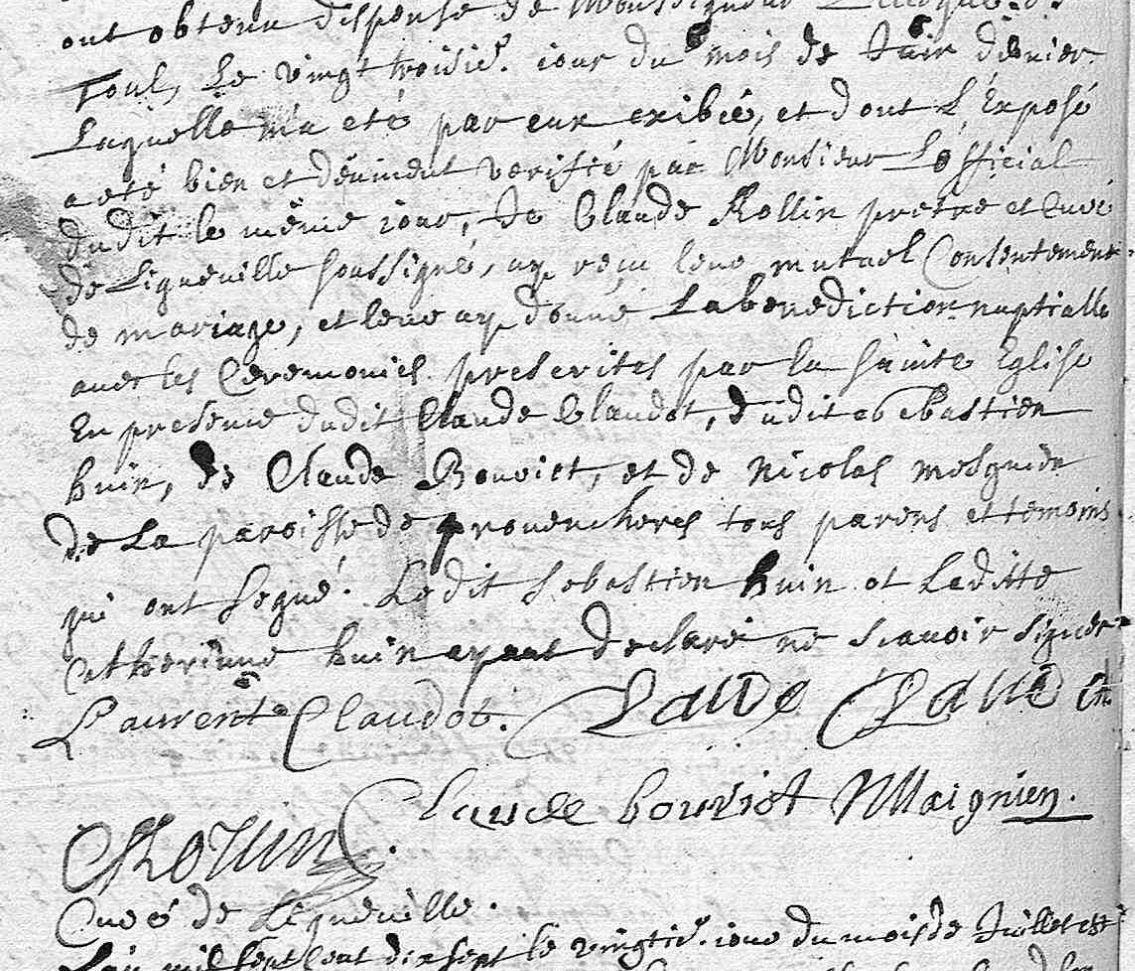 ont obtenu dispense de Monseigneur L'evêque de
Toul, Le vingt troisie. iour du mois de Juin dernier
Laquelle m'a eté par eux exibée, et dont L'Exposé
a eté bien et deüment verifié par Monsieur L'official
dudit le même iour, Je Claude Rollin pretre et Curé
de Ligneuille soussigné, ay reçu leur mutuel Consentement
de mariage, et leur ay donné La benediction nuptialle
auec les Ceremonies prescrites par la sainte Eglise
En presence dudit Claude Claudot, dudit sebastien
huin, de Claude Bouviet, et de Nicolas
de La paroisse de prouencheres tous parens et temoins
qui ont signé. Ledit Sebastien huin et Laditte
Catherinne huin ayant declaré ne scauoir signer
Laurent Claudot. Claude Claudot
Claude bouviet N Maignien.
C Rollin
Curé de Ligneuille.
L'an mil sept cent dix sept le vingtie. iour du mois de Juillet